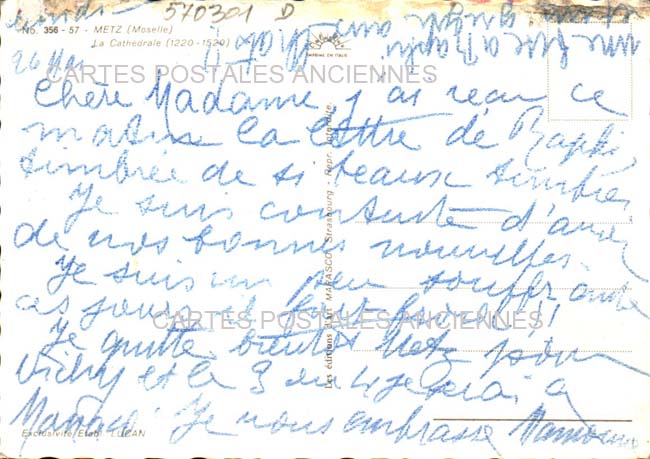 570301 D
lundi
No. 356 - 57 - METZ (Moselle)
La Cathédrale (1220 - 1520)
26 Mai
IMPRIMÉ EN ITALIE
CARTES POSTALES ANCIENNES
Chère Madame, j'ai reçu ce
matin la lettre de
timbrée de si beaux timbres
Je suis contente d'avoir
de vos bonnes nouvelles.
Je suis un peu souffrante
ces jours et fait froid!!
CARTES POSTALES ANCIENNES
Je quitte bientôt Metz pour
Vichy et le 3 ou 4 je serai à
Monaco. Je vous embrasse
Exclusivité Etabl. LUCAN
Les éditions d'art MARASCO, Strasbourg - Repr. interdite